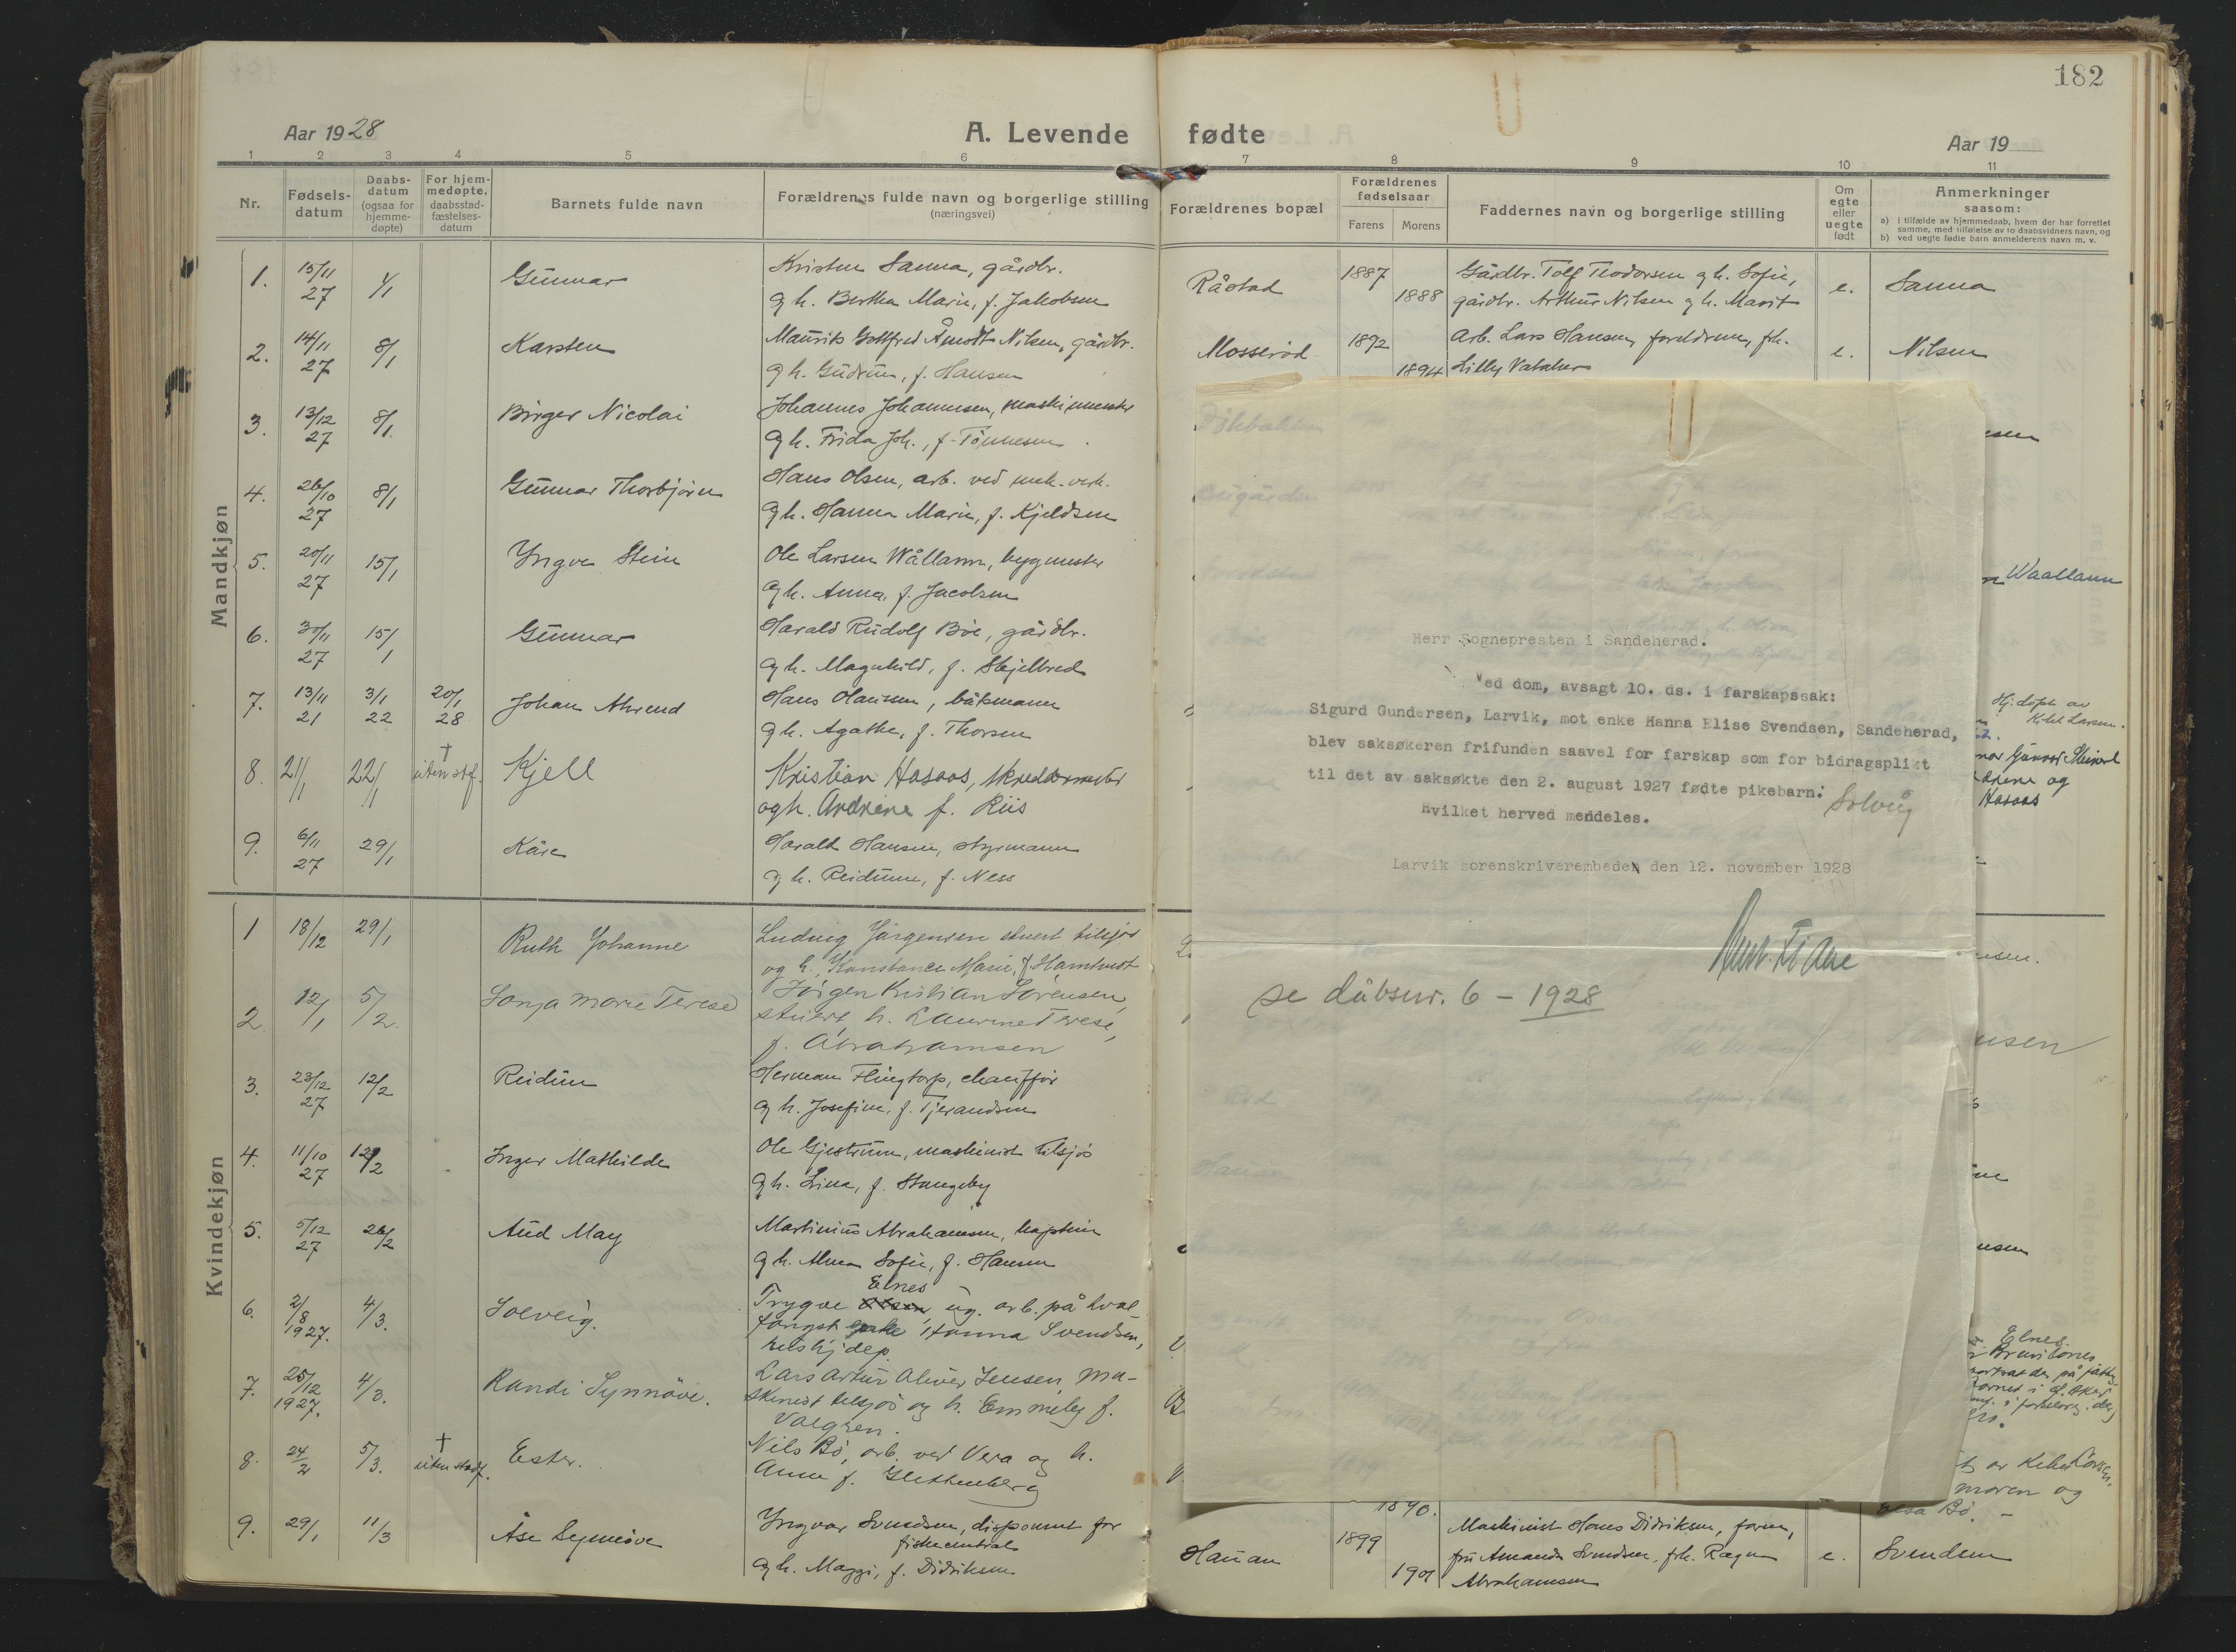 182
Aar 1928
A. Levende fødte
Aar 19
1 2 3 4 5 6 7 8 9 10 11
Nr.
Fødsels-
datum
Daabs-
datum
(ogsaa for
hjemme-
døpte)
For hjem-
medøpte,
daabsstad-
fæstelses-
datum
Barnets fulde navn
Forældrenes fulde navn og borgerlige stilling
(næringsvei)
Forældrenes bopæl
Forældrenes
fødselsaar
Farens Morens
Faddernes navn og borgerlige stilling
Om
egte
eller
uegte
født
Anmerkninger
saasom:
a) i tilfælde av hjemmedaab, hvem der har forrettet
samme, med tilføielse av to daabsvidners navn, og
b) ved uegte fødte barn anmelderens navn m. v.
Mandkjøn
1. 15/11 27 1/1 Gunnar
Kristen Sanna, gårdbr.
og h. Bertha Marie, f. Jakobsen
Råstad 1887 1888
Gårdbr. Tolf Teodorsen og h. Sofie,
gårdbr. Arthur Nilsen og h. Marit
e. Sanna
2. 14/11 27 8/1 Karsten
Mauritz Gottfred Åmodt Nilsen, gårdbr.
og h. Gudrun, f. Hansen
Mosserød 1892 1894
Arb. Lars Hansen, foreldrene, frk.
Lilly
e. Nilsen
3. 13/12 27 8/1 Birger Nicolai
Johannes Johannesen, maskinmester
og h. Frida Joh., f. Tønnesen
4. 26/10 27 8/1 Gunnar Thorbjørn
Hans Olsen, arb. ved mek. verk.
og h. Hanna Marie, f. Kjeldsen
5. 20/11 27 15/1 Yngve Stein
Ole Larsen Wållann, byggmester
og h. Anna, f. Jacobsen
Waallann
6. 30/11 27 15/1 Gunnar
Harald Rudolf Bøe, gårdbr.
og h. Magnhild, f. Skjelbred
7. 13/11 21 3/1 22 20/1 28 Johan Ahrend
Hans Hansen, båtsmann
og h. Agathe, f. Thorsen
Hj. døpt av
Kitel Larsen.
8. 21/1 22/1 † uten stf. Kjell
Kristian Hasaas, skreddermester
og h. Andrine f. Riis
og
Hasaas
9. 6/11 27 29/1 Kåre
Harald Hansen, styrmann
og h. Reidunn, f. Ness
Kvindekjøn
1 18/12 29/1 Ruth Johanne
Ludvig Jørgensen stuert tilsjøs
og h. Konstance Marie, f. Hamtvedt
2 12/1 5/2. Sonja Marie Terese
Jørgen Kristian Sørensen,
stuert, h. Laurine Terese,
f. Abrahamsen
3. 23/12 27 12/2 Reidun
Herman Flingtorp, chauffør
og h. Josefine, f. Tjerandsen
4. 11/10 27 12/2 Inger Mathilde
Ole Gjestrum, maskinist tilsjøs
og h. Lina, f. Stangeby
5. 5/12 27 26/2 Aud May
Martinius Abrahamsen, kaptein
og h. Alma Sofie, f. Hansen
6. 2/8 1927. 4/3. Solveig.
Elnes
Trygve Olsen, ug. arb. på hval
fangst enke Hanna Svendsen,
Elnes
7. 25/12 1927. 4/3. Randi Synnøve.
Lars Artur Oliver Jensen, ma-
skinist tilsjøs og h. Emmely f.
Valgren.
8. 24/2 5/3. † uten stadf. Ester.
Nils Bø, arb. ved Vera og h.
Anna f. Glettenberg
moren og
Elsa Bø.
1890.
9. 29/1 11/3 Åse Synnøve
Yngvar Svendsen, disponent for
fiskecentral
og h. Maggi, f. Didriksen
Hauan 1899 1901
Maskinist Hans Didriksen, faren,
fru Amanda Svendsen, frk. Ragna
Abrahamsen
e. Svendsen
Herr Sognepresten i Sandeherad.
Ved dom, avsagt 10. ds. i farskapssak:
Sigurd Gundersen, Larvik, mot enke Hanna Elise Svendsen, Sandeherad,
blev saksøkeren frifunden saavel for farskap som for bidragsplikt
til det av saksøkte den 2. august 1927 fødte pikebarn: Solveig
Hvilket herved meddeles.
Larvik sorenskriverembede, den 12. november 1928
se dåbsnr. 6 – 1928